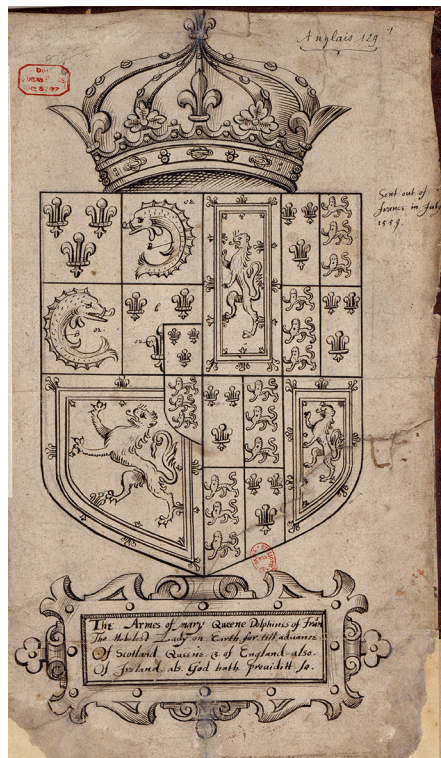 Anglais 129
Sent out of
france in July
1559
oz.
oz.
The Armes of mary Queene Dolphines of Fran
The Lady on Earth for till advance
Of Scotland Queene & of England also
Of Ireland als God hath providitt so.